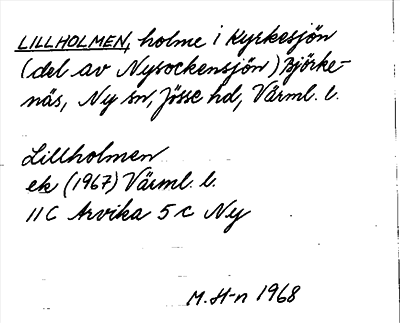 LILLHOLMEN, holme i Kyrkesjön
(del av Nysockensjön) Björke-
näs, Ny sn, Jösse hd, Värml. l.
Lillholmen
ek (1967) Värml. l.
11 C Arvika 5 c Ny
M. H-n 1968